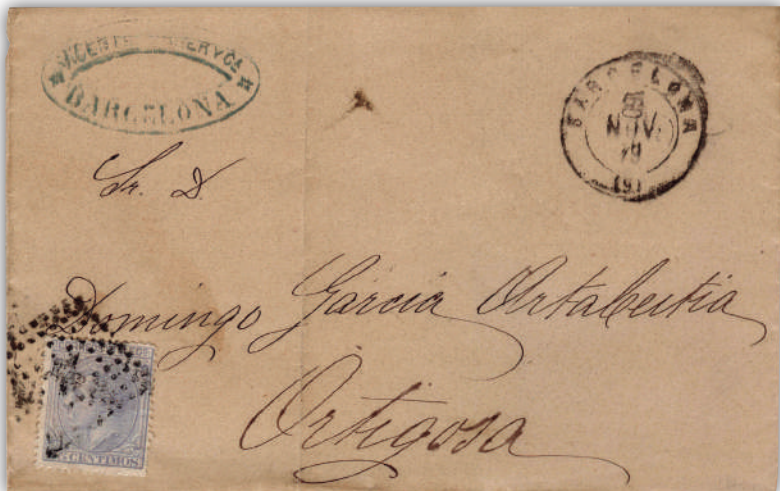 VICENTE
BARCELONA
BARCELONA
NOV.
79
(9)
Sr. D.
Domingo Garcia Ortabertia
Ortigosa
CENTIMOS